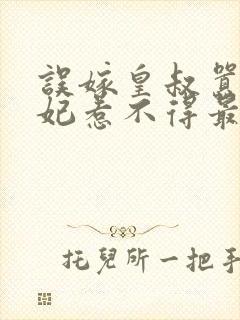 誤嫁皇叔
妃惹不得最
托兒所一把手